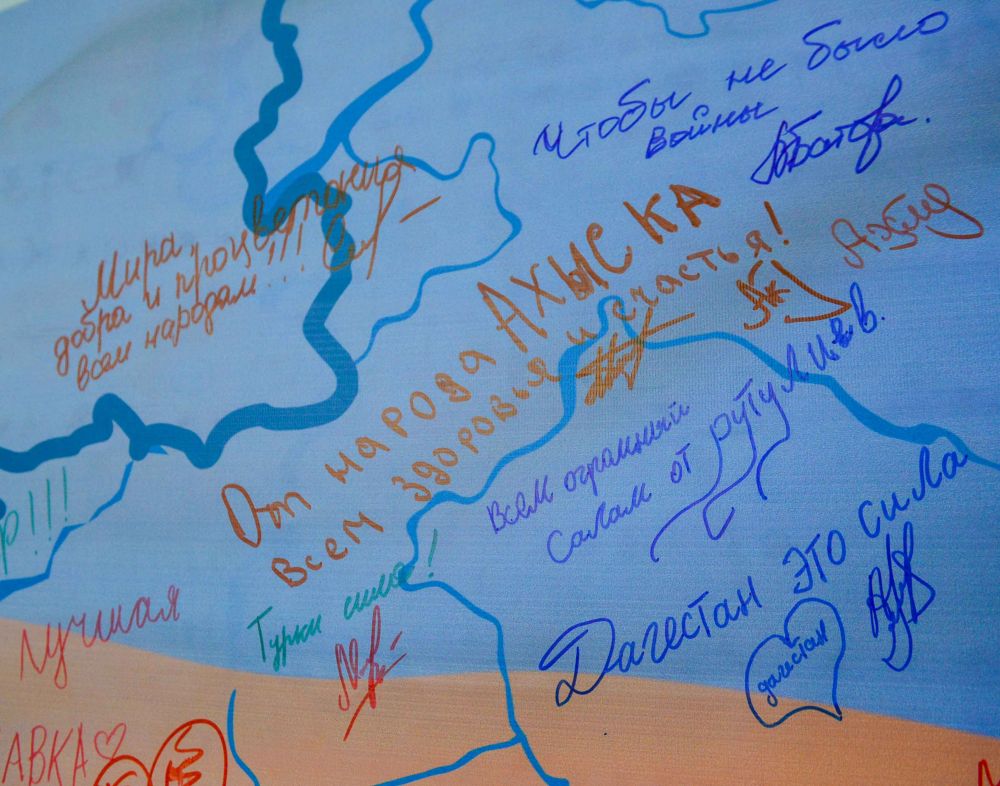 Чтобы не было
войны
Мира
добра и процветания
всем народам...!!!
От народа АХЫСКА
Всем здоровья и счастья!
Всем огромный
Салам от рутулцев.
Дагестан ЭТО СИЛА
дагестан
Турки сила!
Лучшая
АВКА
Р!!!